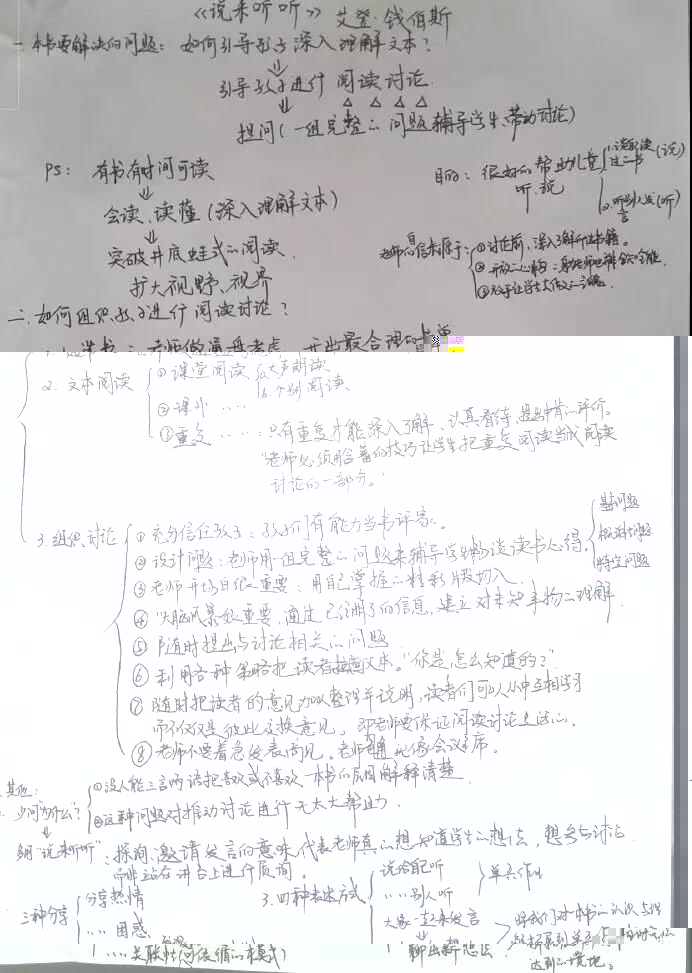 《说来听听》 艾登·钱伯斯
一.本书要解决的问题：如何引导孩子深入理解文本？
引导孩子进行 阅读讨论
提问（一组完整的问题辅导学生、带动讨论）
PS： 有书有时间可读
会读、读懂（深入理解文本）
突破井底蛙式的阅读
扩大视野、视界
目的：很好的帮助儿童
听、说
(说)
2.听别人发言(听)
老师
①讨论前，深入了解
二.如何组织孩子进行阅读讨论？
1. 选书：老师做通盘考虑，开出最合理的书单
2. 文本阅读
①课堂阅读 a.大声朗读
b.个别阅读
②课外 ……
③重复……：只有重复才能深入了解、认真看待、提出中肯的评价。
"老师必须用合适的技巧让学生把重复阅读当成阅读
讨论的一部分。"
3. 组织讨论
①充分信任孩子：孩子们有能力当书评家。
②设计问题：老师用一组完整的问题来辅导学生畅谈读书心得。
基本问题
概括问题
特定问题
③老师开场白很重要：用自己掌握的精彩片段切入.
④头脑风暴很重要，通过已知的信息，建立对未知事物的理解.
⑤随时提出与讨论相关的问题
⑥利用各种策略把读者拉回文本。"你是怎么知道的？"
⑦随时把读者的意见加以整理并说明，读者们可以从中互相学习
而不仅仅是彼此交换意见。即老师要保证阅读讨论是
⑧老师不要着急发表高见。老师 像会议主席。
其他：
少问"为什么"？
①没人能三言两语把喜欢或不喜欢一本书的原因解释清楚
②这种问题对推动讨论进行无太大帮助.
多用"说来听听"：探询、邀请发言的意味，代表老师真的想知道学生的想法，想参与讨论
而非站在讲台上进行质询。
三种分享
分享热情
……困惑
……关联性
3.四种表达方式
说给自己听
……别人听
大家一起来发言
聊出新想法
单兵作业
将我们对本书的认识与理
达到的境地。